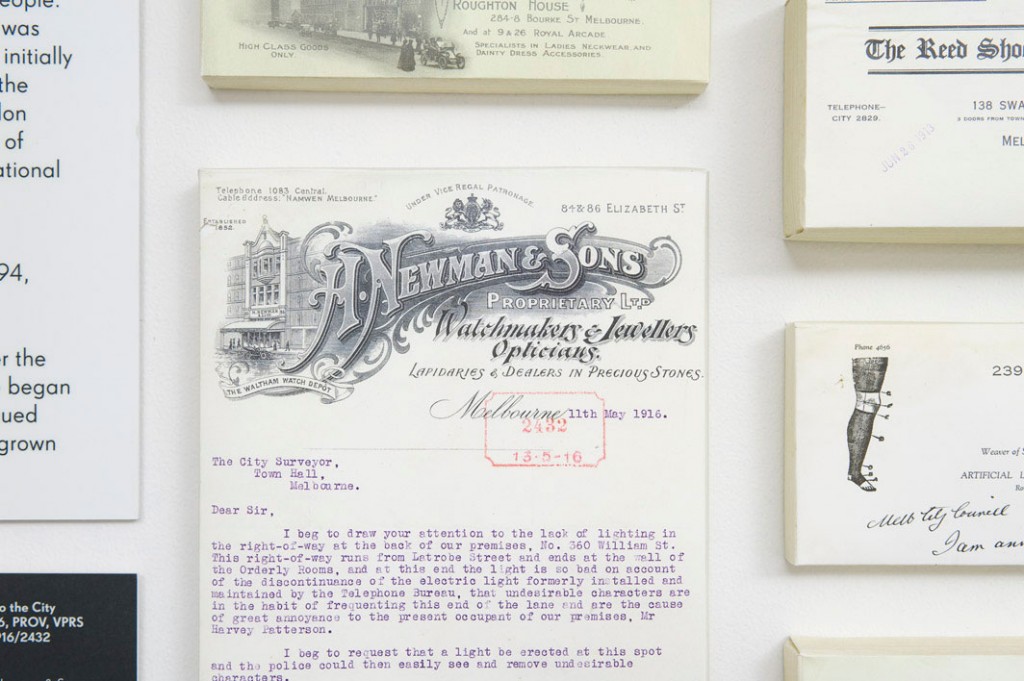 eople.
was
initially
the
don
of
ational
94,
er the
began
ued
grown
o the City
6, PROV, VPRS
916/2432
ROUGHTON HOUSE
284-8 BOURKE ST MELBOURNE.
And at 9 & 26 ROYAL ARCADE.
HIGH CLASS GOODS
ONLY
SPECIALISTS IN LADIES NECKWEAR AND
DAINTY DRESS ACCESSORIES.
Telephone 1083 Central.
Cable Address: "NAMWEN MELBOURNE."
UNDER VICE REGAL PATRONAGE.
84 & 86 ELIZABETH ST
ESTABLISHED
A. NEWMAN & SONS
PROPRIETARY LTD
Watchmakers & Jewellers
Opticians.
LAPIDARIES & DEALERS IN PRECIOUS STONES.
THE WALTHAM WATCH DEPÔT
Melbourne 11th May 1916.
2432
13-5-16
The City Surveyor,
Town Hall,
Melbourne.
Dear Sir,
I beg to draw your attention to the lack of lighting in
the right-of-way at the back of our premises, No. 360 William St.
This right-of-way runs from Latrobe Street and ends at the wall of
the Orderly Rooms, and at this end the light is so bad on account
of the discontinuance of the electric light formerly installed and
maintained by the Telephone Bureau, that undesirable characters are
in the habit of frequenting this end of the lane and are the cause
of great annoyance to the present occupant of our premises, Mr
Harvey Patterson.
I beg to request that a light be erected at this spot
and the police could then easily see and remove undesirable
characters.
The Reed Sho
TELEPHONE—
CITY 2829.
138 SWA
3 DOORS FROM TOWN
MEL
JUN 1913
Phone 4656
239
Weaver of S
ARTIFICIAL L
Melb City Council
I am an